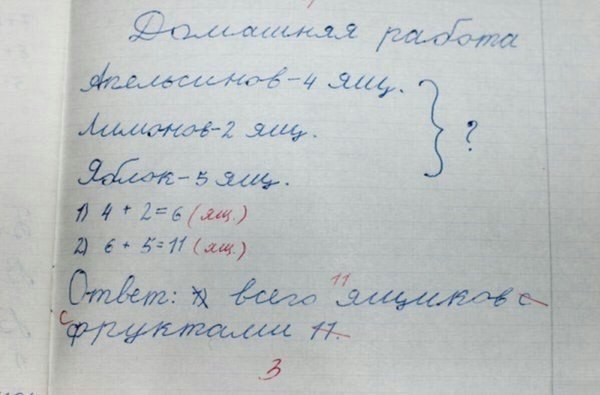 Домашняя работа
Апельсинов-4 ящ.
Лимонов-2 ящ.
?
Яблок-5 ящ.
1) 4 + 2 = 6 (ящ.)
2) 6 + 5 = 11 (ящ.)
11
Ответ: всего ящиков с
с фруктами 11.
3